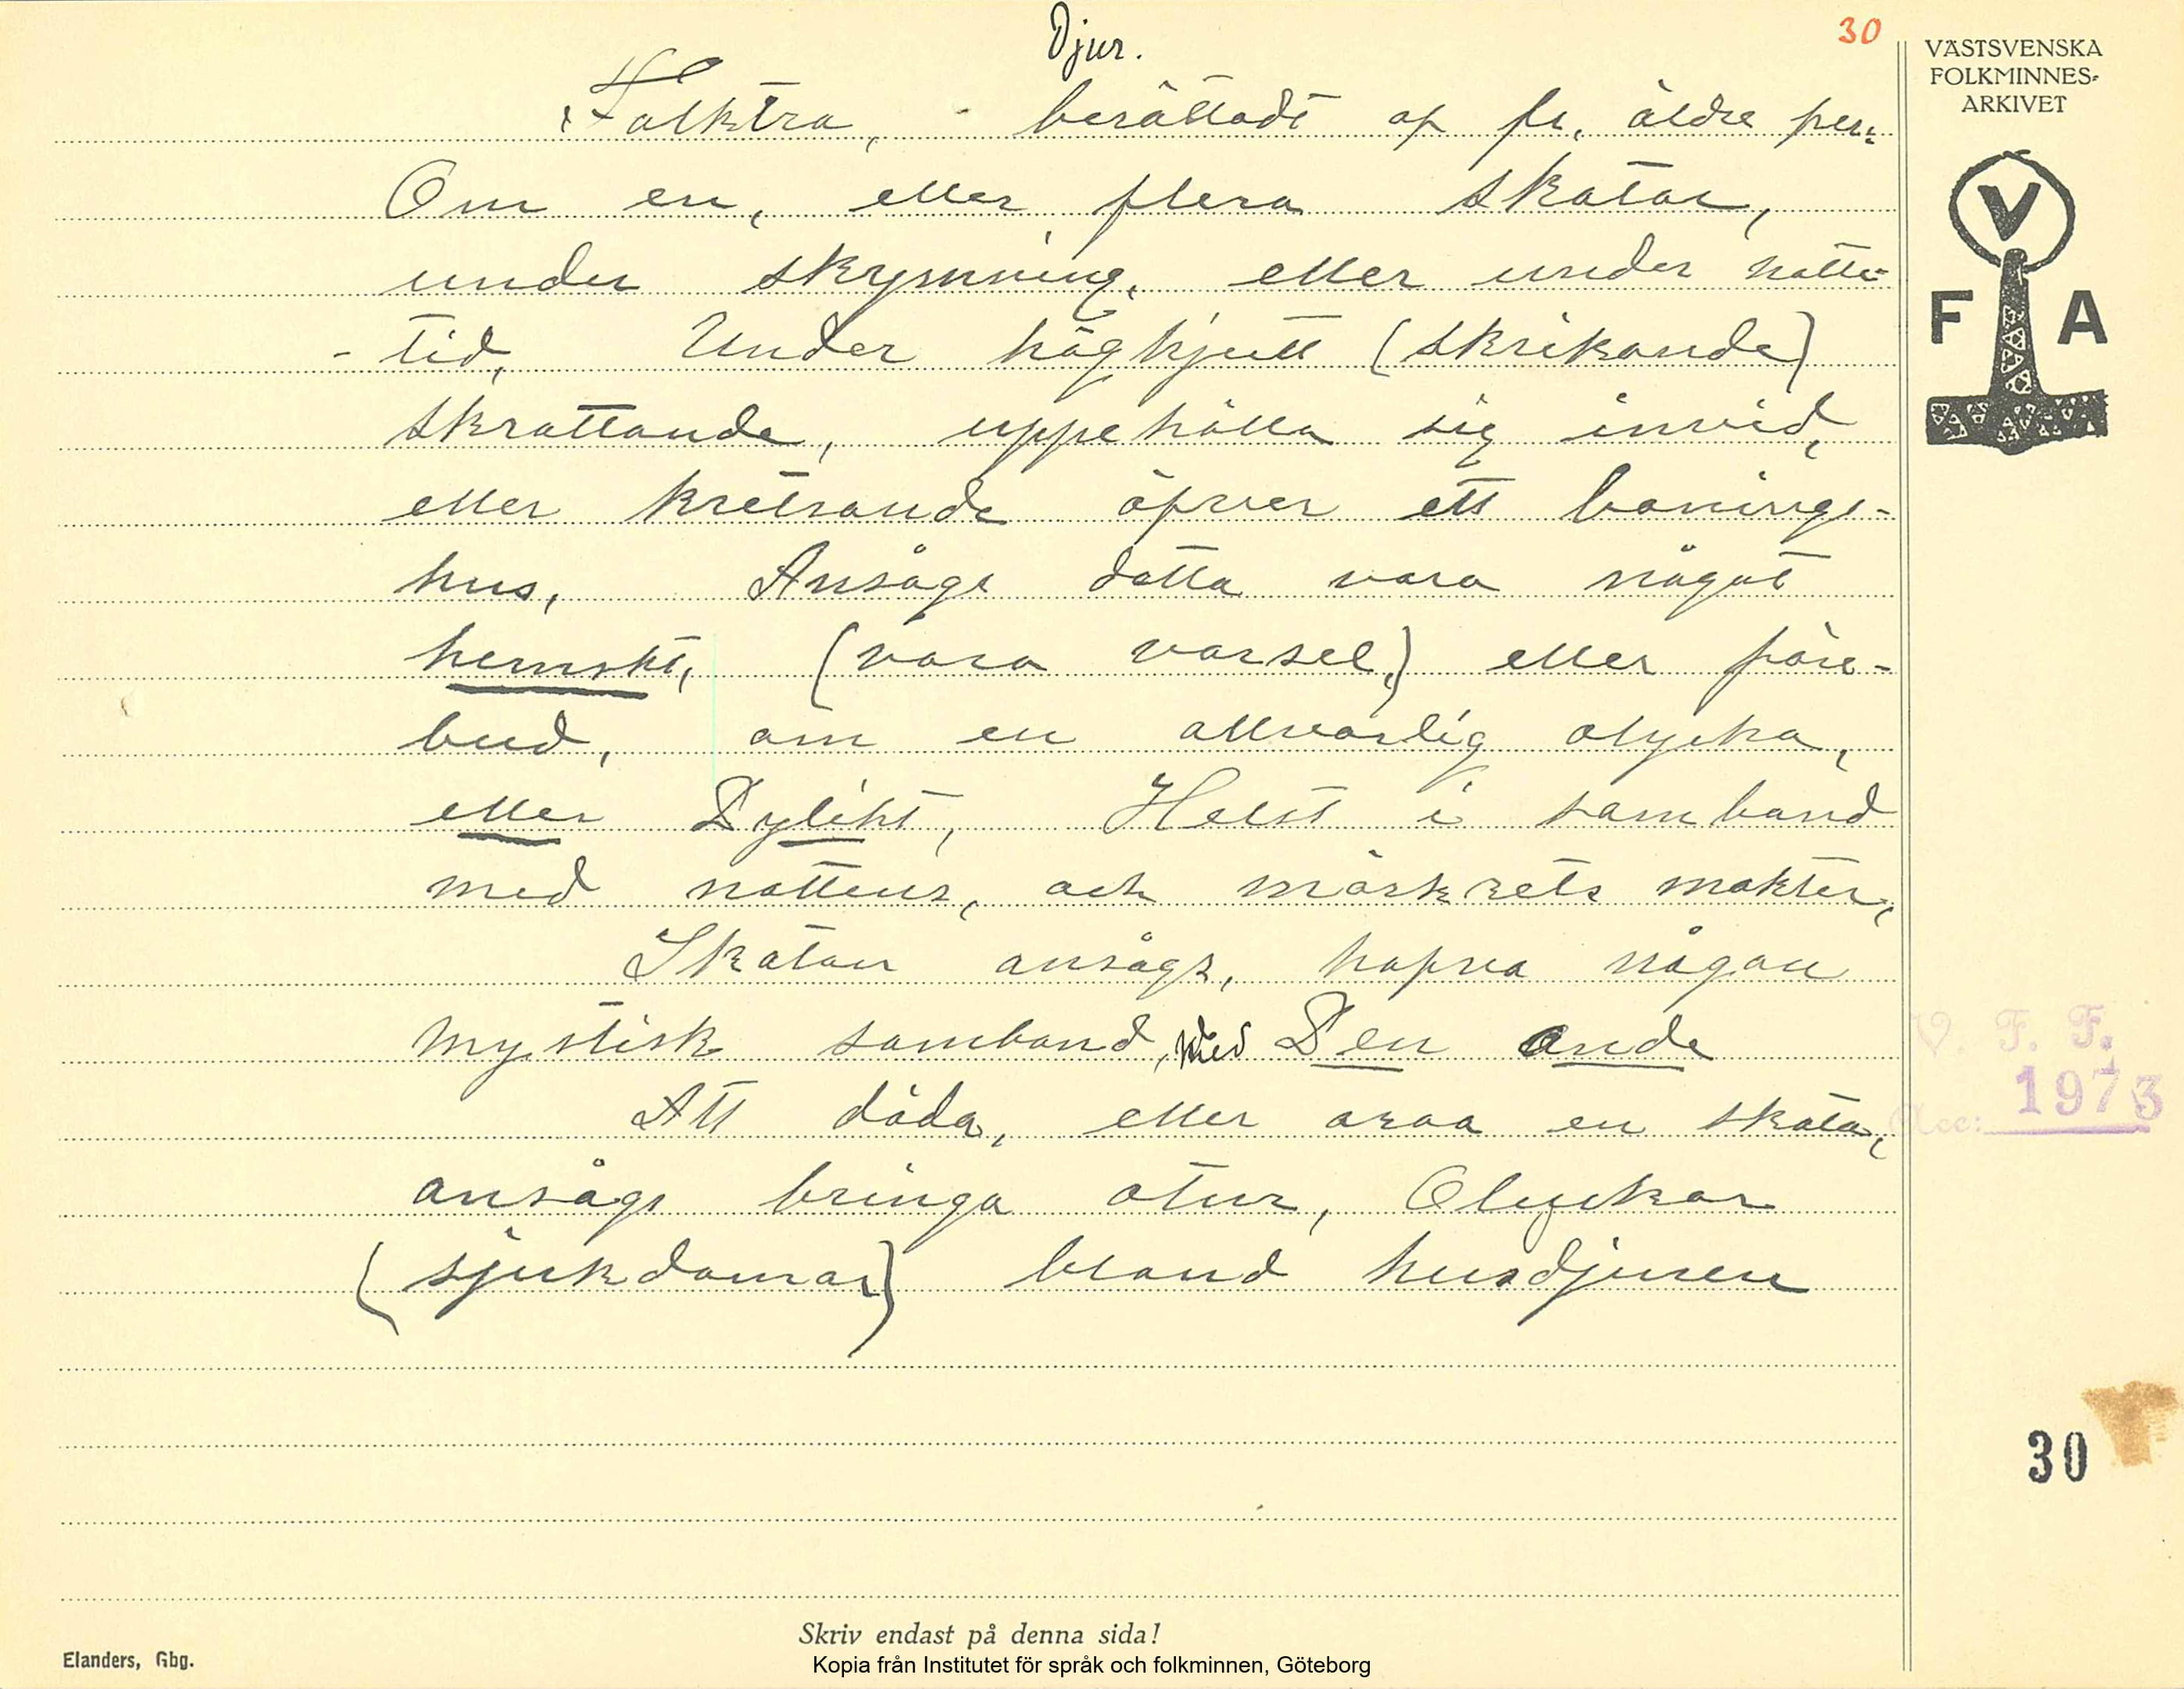 Djur.
30
VÄSTSVENSKA
FOLKMINNES-
ARKIVET
Falktra, - berättadt af fr. äldre per:
Om en, eller flera skator,
V
under skymning, eller under natte-
F A
- tid, Under högljutt (skrikande)
skrattande, uppehålla sig invid,
eller kretsande öfver ett bonings-
hus, Ansågs detta vara något
hemskt, (vara varsel,) eller före-
bud, om en allvarlig olycka,
eller Dylikt, Helst i samband
med nattens, och mörkrets makter,
Skatan ansågs, hafva någon
V. F. F.
mystisk samband, med Den Onde
Acc: 1973
Att döda, eller oroa en skata,
ansågs bringa otur, Olyckor
(sjukdomar) bland husdjuren
30
Skriv endast på denna sida!
Elanders, Gbg.
Kopia från Institutet för språk och folkminnen, Göteborg